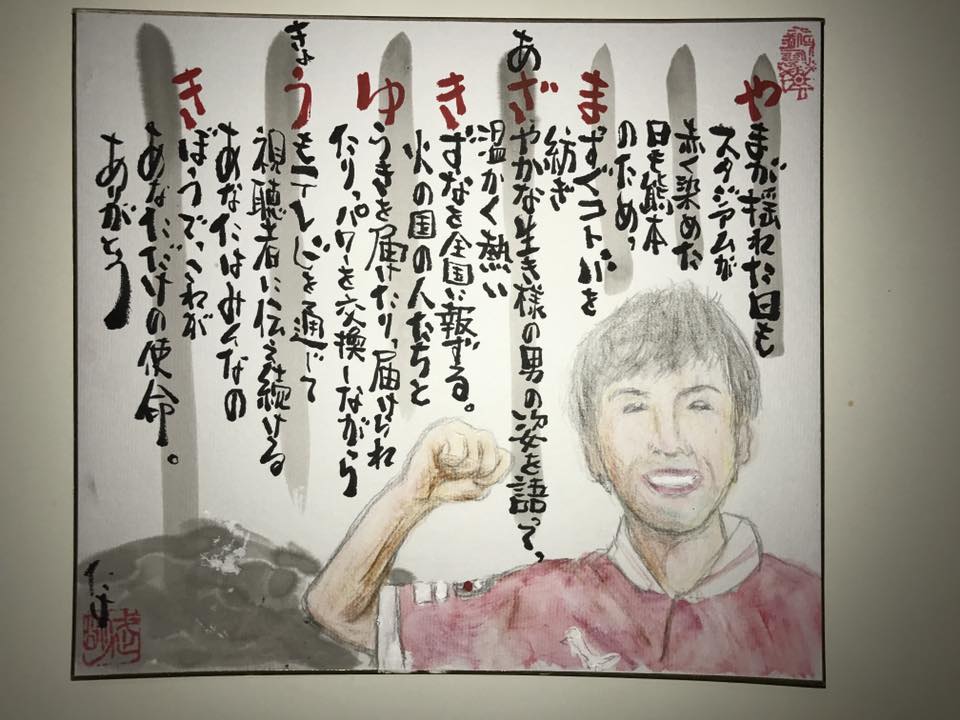 やまが揺れた日も
スタジアムが
赤く染めた
日も熊本
のため、
まずくコトバを
紡ぎ
あざやかな生き様の男の姿を語って、
温かく熱い
きずなを全国に報ずる。
火の国の人たちと
ゆうきを届けたり、届けられ
たり、パワーを交換しながら
きょうもテレビを通じて
視聴者に伝え続ける
あなたはみんなの
きぼうで、これが
あなただけの使命。
ありがとう